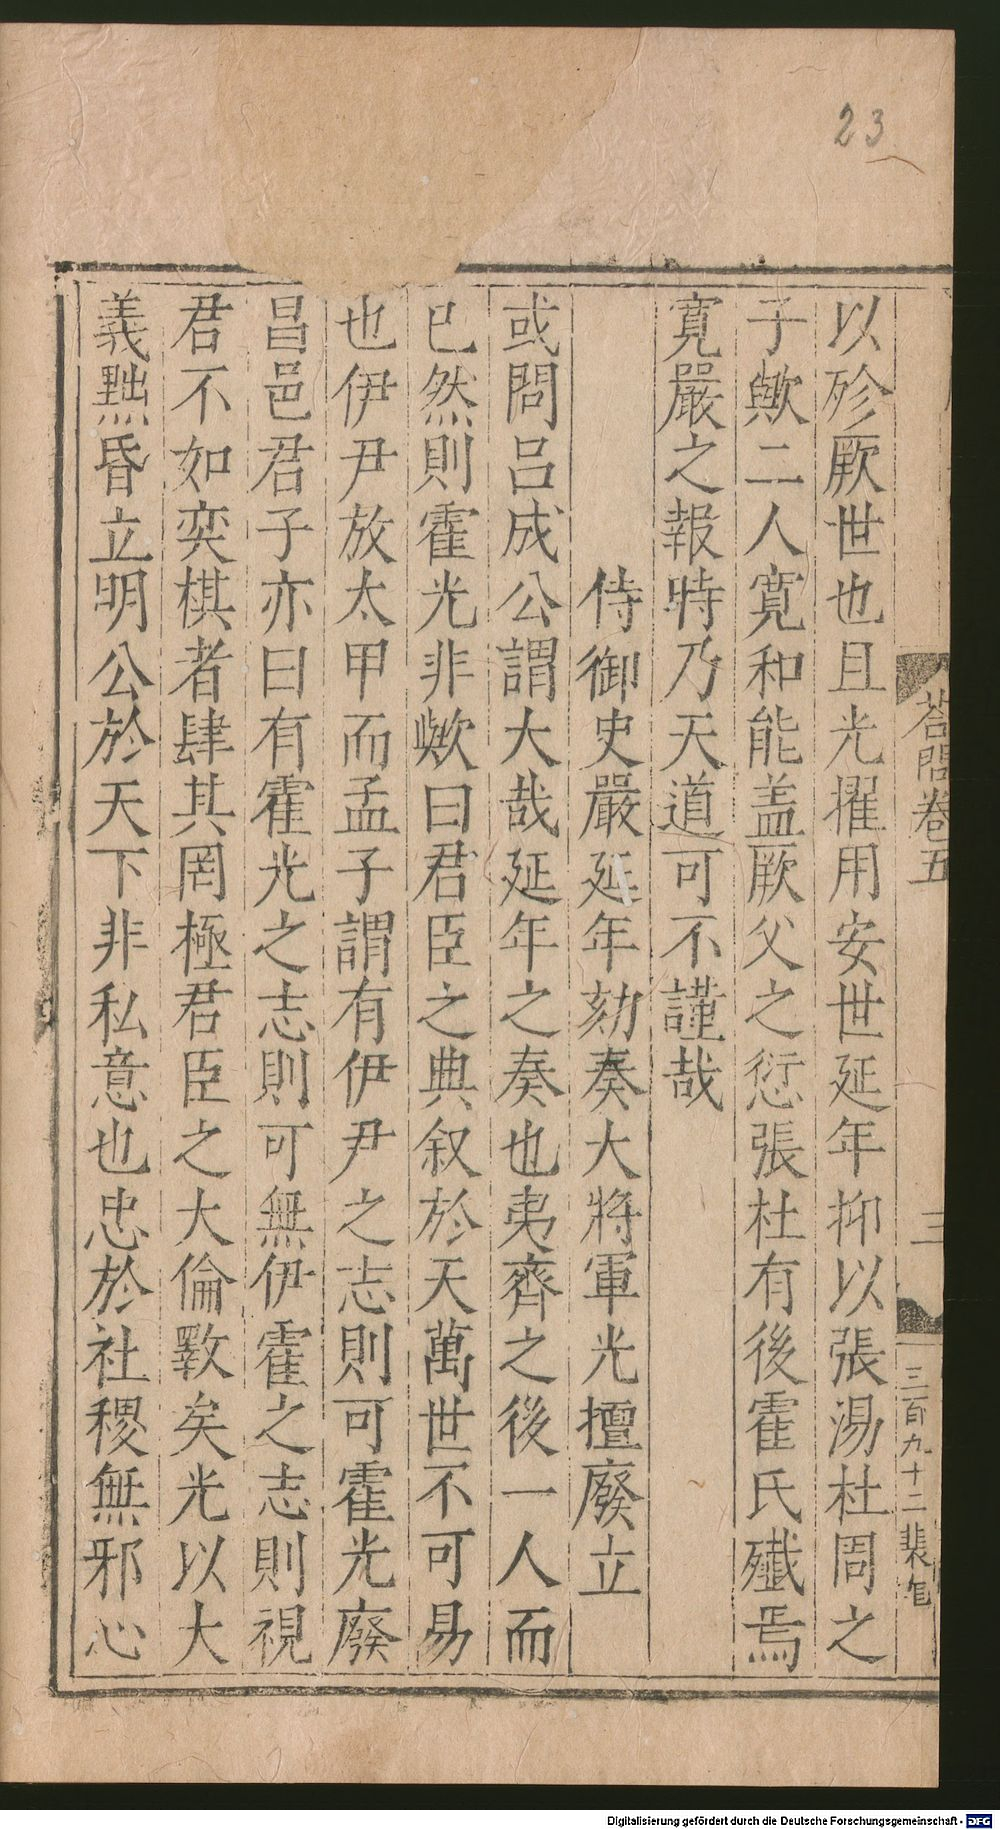 23
答問卷五
三
三百九十二
以殄厥世也且光擢用安世延年抑以張湯杜周之
子歟二人寛和能盖厥父之愆張杜有後霍氏殲焉
寛嚴之報時乃天道可不謹哉
侍御史嚴延年劾奏大將軍光擅廢立
或問呂成公謂大哉延年之奏也夷齊之後一人而
已然則霍光非歟曰君臣之典叙於天萬世不可易
也伊尹放太甲而孟子謂有伊尹之志則可霍光廢
昌邑君子亦曰有霍光之志則可無伊霍之志則視
君不如奕棋者肆其罔極君臣之大倫斁矣光以大
義黜昏立明公於天下非私意也忠於社稷無邪心
Digitalisierung gefördert durch die Deutsche Forschungsgemeinschaft - DFG